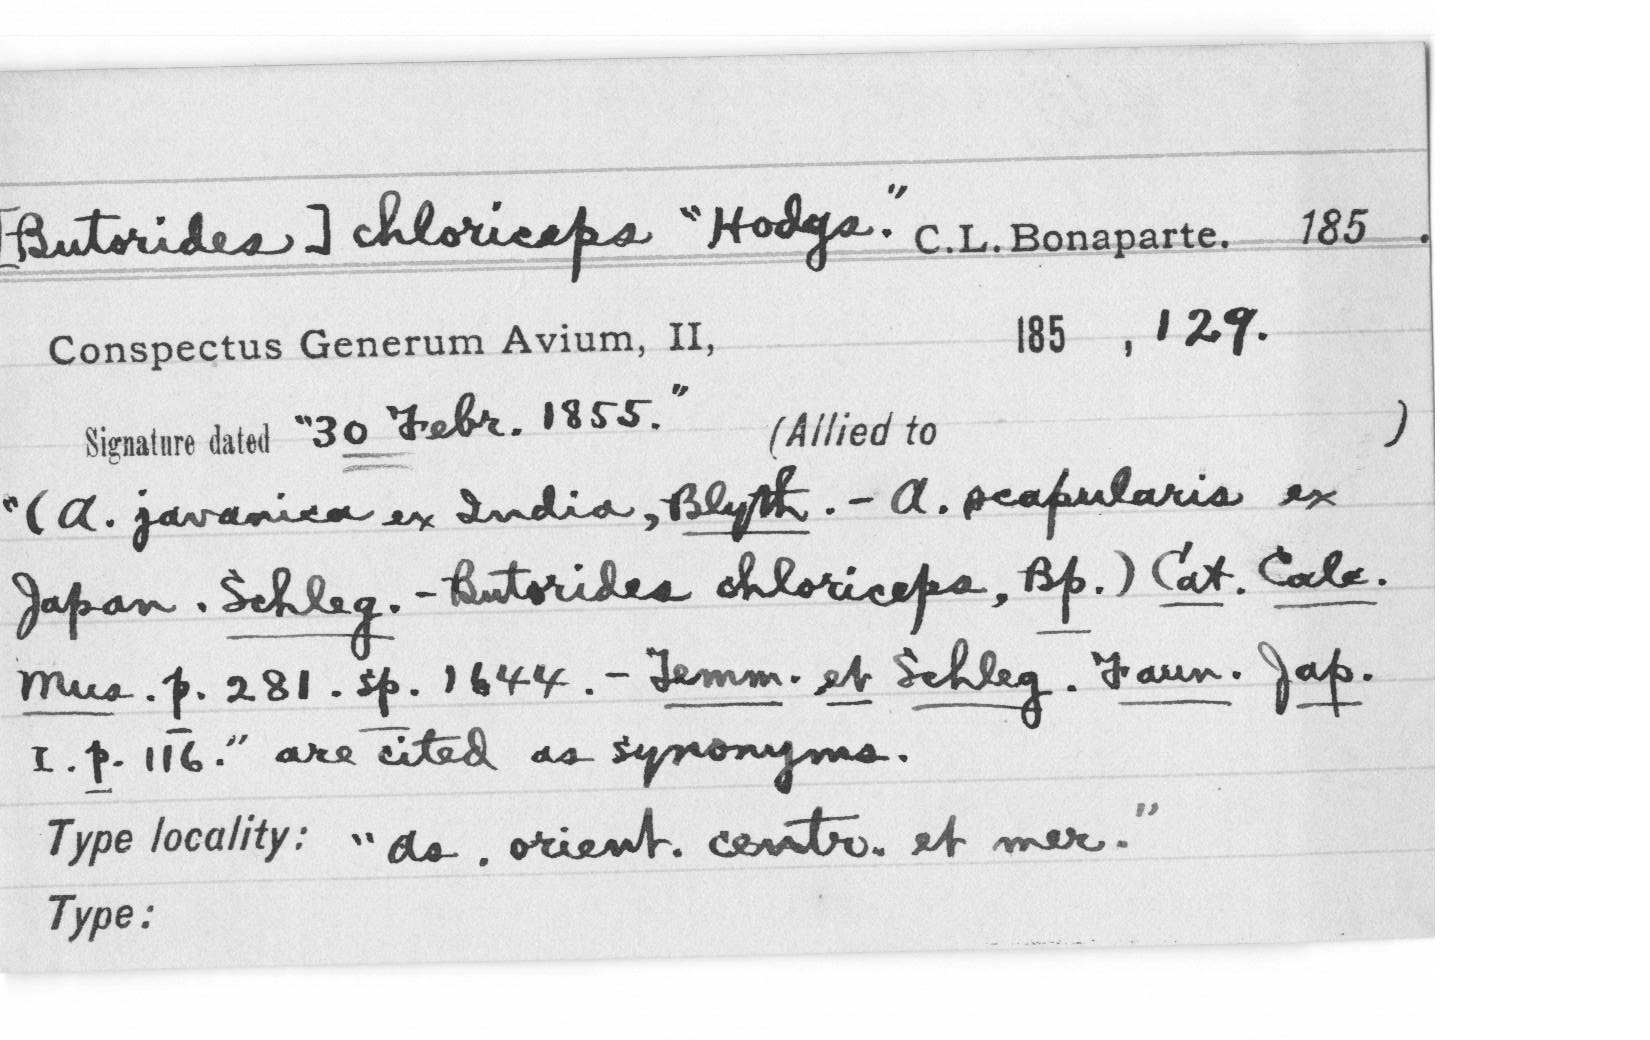 [Butorides] chloriceps "Hodgs." C.L. Bonaparte. 185 .
Conspectus Generum Avium, II, 185 , 129.
Signature dated "30 Febr. 1855." (Allied to )
"(A. javanica ex India, Blyth. - A. scapularis ex
Japan. Schleg. - Butorides chloriceps, Bp.) Cat. Calc.
Mus. p. 281. sp. 1644. - Temm. et Schleg. Faun. Jap.
I. p. 116." are cited as synonyms.
Type locality: "As. orient. centr. et mer."
Type: